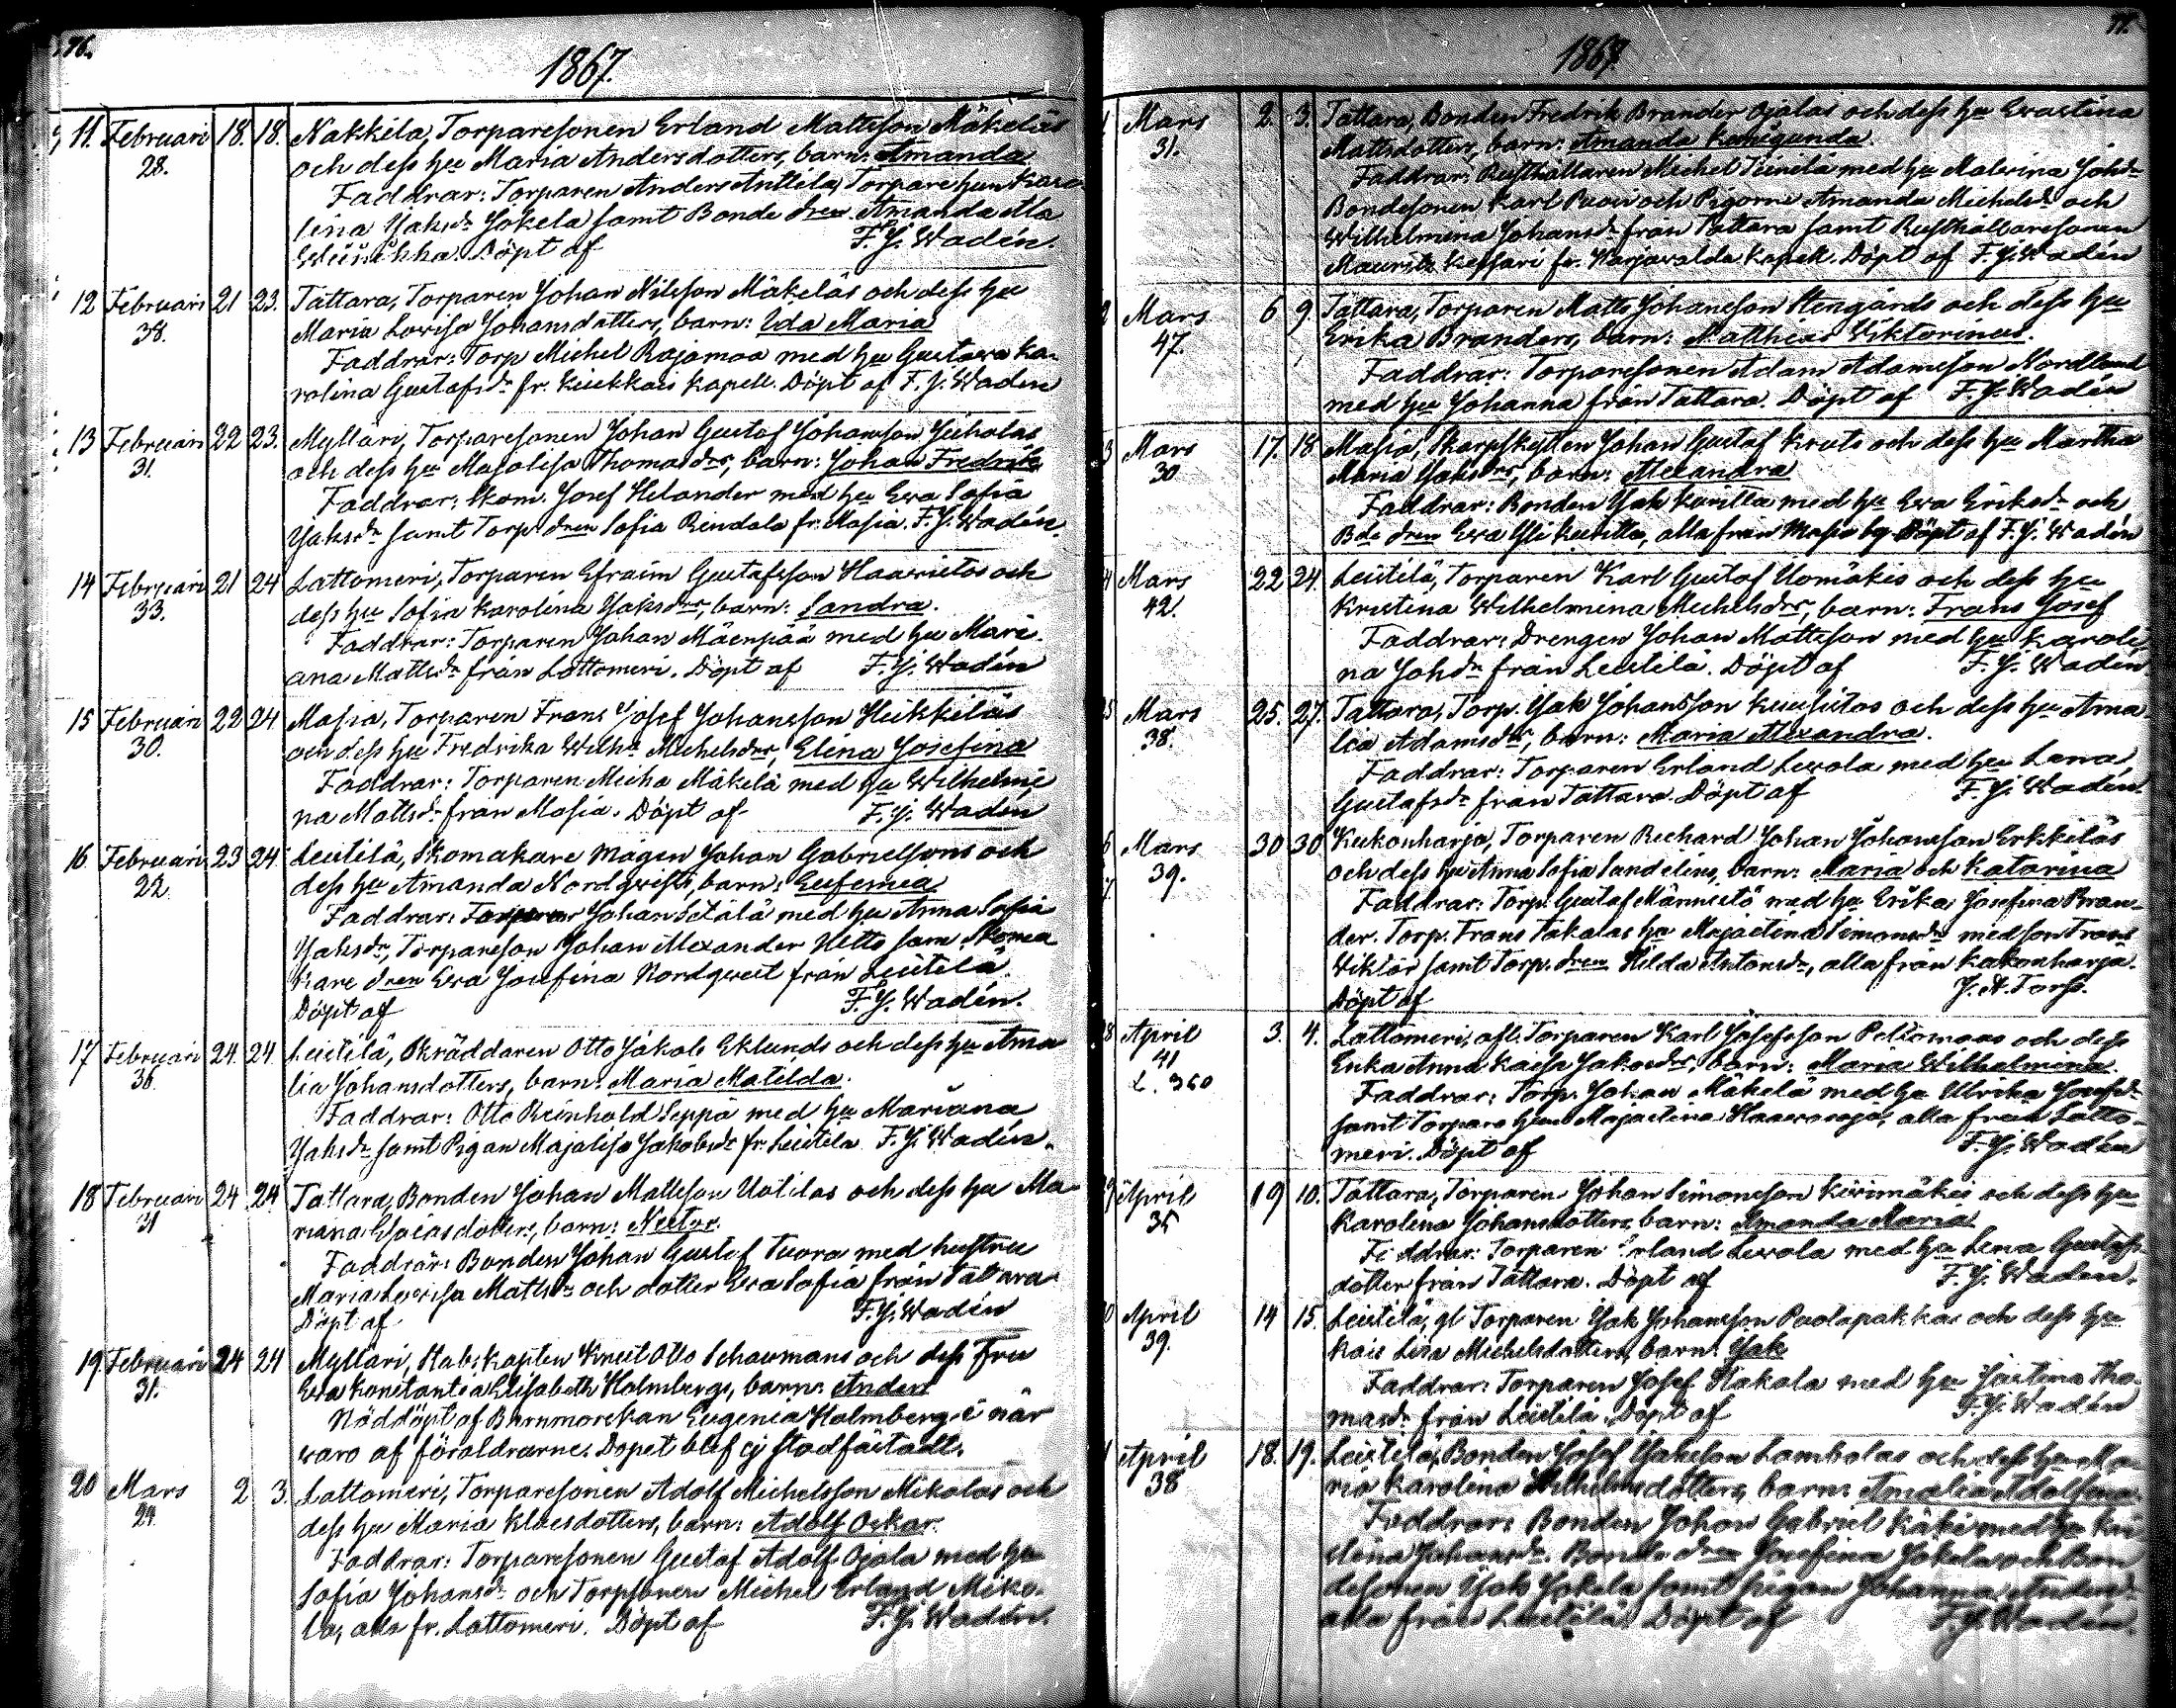 76.
1867.
11. Februari 18. 18. Nakkila, Torparesonen Erland Mattsson Mäkeläs
28. och dess hu Maria Andersdotters, barn: Amanda
Faddrar: Torparen Anders Anttila, Torpare hun Karo-
lina Jaksdr Jokela samt Bonde dren Amanda Ala
Döpt af F. J. Wadén.
12 Februari 21 23. Tattara, Torparen Johan Nilsson Mäkeläs och dess hu
38. Maria Lovisa Johansdotters, barn: Ida Maria
Faddrar: Torp Michel Rajamaa med hu Gustava Ka-
rolina Gustafsdr fr. Kiukkais Kapell. Döpt af F. J. Wadén
13 Februari 22 23. Myllari, Torparesonen Johan Gustaf Johansson
31. och dess hu Majalisa Thomasdrs, barn: Johan Fredrik
Faddrar: Skom. Josef Helander med hu Eva Sofia
Jaksdr samt Torp. dren Sofia Rindala fr. Masia. F. J. Wadén.
14 Februari 21 24 Lattomeri, Torparen Efraim Gustafsson Haavistos och
33. dess hu Sofia Karolina Jaksdrs, barn: Sandra.
Faddrar: Torparen Johan Mäenpää med hu Mari-
ana Mattsdr från Lattomeri. Döpt af F. J. Wadén
15 Februari 22 24 Masia, Torparen Frans Josef Johansson Heikkiläs
30. och dess hu Fredrika Wilhа Michelsdrs, Elina Josefina
Faddrar: Torparen Micha Mäkelä med hu Wilhelmi
na Mattsdr från Masia. Döpt af F. J. Wadén
16. Februari 23 24. Leistilä, Skomakare mågen Johan Gabrielssons och
22. dess hu Amanda Nordqvists, barn: Eufemia
Faddrar: Torparen Johan Setälä med hu Anna Sofia
Jaksdr, Torpareson Johan Alexander Hette sam Skoma
kare dren Eva Josefina Nordqvist från Leistilä.
Döpt af F. J. Wadén.
17 Februari 24. 24 Leistilä, Skräddaren Otto Jakob Eklunds och dess hu Ama
36. lia Johansdotters, barn: Maria Matilda.
Faddrar: Otto Reinhold Seppä med hu Mariana
Jaksdr samt Pigan Majalisa Jakobsdr fr. Leistilä F. J. Wadén.
18 Februari 24 24 Tattara, Bonden Johan Mattsson Uotilas och dess hu Ma-
31 riana Esaiasdotters, barn: Nestor.
Faddrar: Bonden Johan Gustaf Tuora med hustru
Maria Lovisa Mattsdr och dotter Eva Sofia från Tattara
Döpt af F. J. Wadén
19. Februari 24 24 Myllari, Stabskapten Knut Otto Schaumans och dess Fru
31. Eva Konstantia Elisabeth Holmbergs, barn: Anders
Nöddöpt af Barnmorskan Eugenia Holmberg i när
varo af föräldrarne. Dopet blef ej stadfästadt.
20 Mars 2 3. Lattomeri, Torparesonen Adolf Michelsson Mikolas och
29. dess hu Maria Klaesdotters, barn: Adolf Oskar.
Faddrar: Torparesonen Gustaf Adolf Ojala med hu
Sofia Johansdr och Torpsonen Michel Erland Miko-
la, alla fr. Lattomeri. Döpt af F. J. Wadén.
77.
1867.
Mars 2. 3. Tattara, Bonden Fredrik Brander Ojalas och dess hu Evastina
31. Mattsdotters, barn: Amanda Kunigunda.
Faddrar: Rusthållaren Michel med hu Johsdr
Bondesonen Karl och Pigorne Amanda Michelsdr och
Wilhelmina Johansdr från Tattara samt Rusthållaresonen
Mauritz fr. Harjavalda Kapell. Döpt af F. J. Wadén
Mars 6 9. Tattara, Torparen Matts Johansson Stengårds och dess hu
47. Erika Branders, barn: Matthias Viktorinus.
Faddrar: Torparesonen Adam Adamsson Nordlund
med hu Johanna från Tattara. Döpt af F. J. Wadén
Mars 17. 18 Masia, Skarpskytten Johan Gustaf Kruts och dess hu Martha
30 Maria Jaksdrs, barn: Alexandra
Faddrar: Bonden Jak med hu Eva Eriksdr och
Bde dren Eva alla från Masia by Döpt af F. J. Wadén
Mars 22 24. Leistilä, Torparen Karl Gustaf Uomäkis och dess hu
42. Kristina Wilhelmina Michelsdrs, barn: Frans Josef
Faddrar: Drengen Johan Mattsson med hu Karoli-
na Johsdr från Leistilä. Döpt af F. J. Wadén.
Mars 25. 27. Tattara, Torp. Jak Johansson Kuusistos och dess hu Ama-
38. lia Adamsdrs, barn: Maria Alexandra.
Faddrar: Torparen Erland Levola med hu Lena
Gustafsdr från Tattara. Döpt af F. J. Wadén.
Mars 30 30 Kukonharja, Torparen Richard Johan Johansson Erkkiläs
39. och dess hu Anna Sofia Sandelins, barn: Maria och Katarina
Faddrar: Torp. Gustaf Männistö med hu Erika Josefina Bran-
der. Torp. Frans Takalas hu Majastina Simonsdr med son Frans
Wiktor samt Torp. dren Hilda Antonsdr, alla från Kukonharja.
Döpt af J. A. Torss.
April 3. 4. Lattomeri, afl. Torparen Karl Josefsson Peltomaas och dess
41 Enka Anna Kaisa Jakosdrs, barn: Maria Wilhelmina.
L. 360
Faddrar: Torp. Johan Mäkelä med hu Ulrika Josefsdr
samt Torpare hun Majastina Haavanoja, alla från Latto-
meri. Döpt af F. J. Wadén
April 9 10. Tattara, Torparen Johan Simonsson Kiviniakis och dess hu
35 Karolina Johansdotters, barn: Amanda Maria
Faddrar: Torparen Erland Levola med hu Lena Gustafs-
dotter från Tattara. Döpt af F. J. Wadén.
April 14 15. Leistilä, gl Torparen Jak Johansson Padapakkas och dess hu
39. Kais Lisa Michelsdotters, barn: Jak
Faddrar: Torparen Josef Stakala med hu Justina Tho-
masdr från Leistilä. Döpt af F. J. Wadén
April 18. 19. Leistilä, Bonden Josef Jaksson Lambolas och dess hu Ma-
38 ria Karolina Wilhelmsdotters, barn: Amalia Adolfina.
Faddrar: Bonden Johan Gabriel Käki med hu Kri
stina Johansdr. Bonde dren Josefina Jokela och Bon
desonen Jak Jokela samt pigan Johanna Andersdr
alla från Leistilä Döpt af F. J. Wadén.